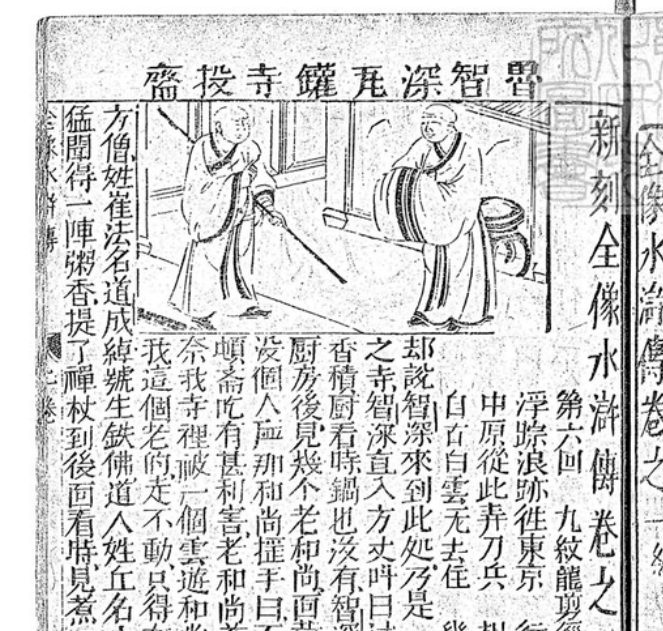 全像水滸傳卷之一終
新刻全像水滸傳卷之
魯智深瓦鑵寺投齋
第六回 九紋龍剪徑
浮踪浪跡徃東京 行
中原從此弄刀兵
自古白雲无去住 幾
却說智深來到此処乃是
之寺智深直入方丈呌曰
香積厨看時鍋也沒有智深
厨房後見幾个老和尚面黄
没個人應那和尚擺手曰不
頓斎吃有甚利害老和尚
奈我寺裡被一個雲遊和尚
我這個老的走不動只得在
方僧姓崔法名道成綽號生鉄佛道人姓丘名
猛聞得一陣粥香提了禪杖到後面看時見煮
全像水滸傳 卷